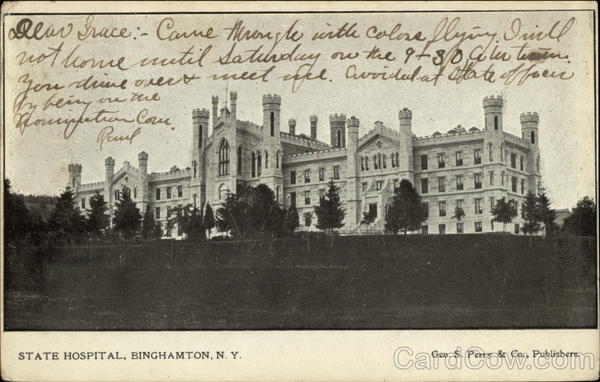 Dear Grace:- Came through with colors flying I will
not home until Saturday on the 9-30 train.
You drive over & meet me. Avoided at State officer
by being on the
Nomination Com.
Paul
STATE HOSPITAL, BINGHAMTON, N. Y.
Geo. S. Perry & Co., Publishers.
CardCow.com